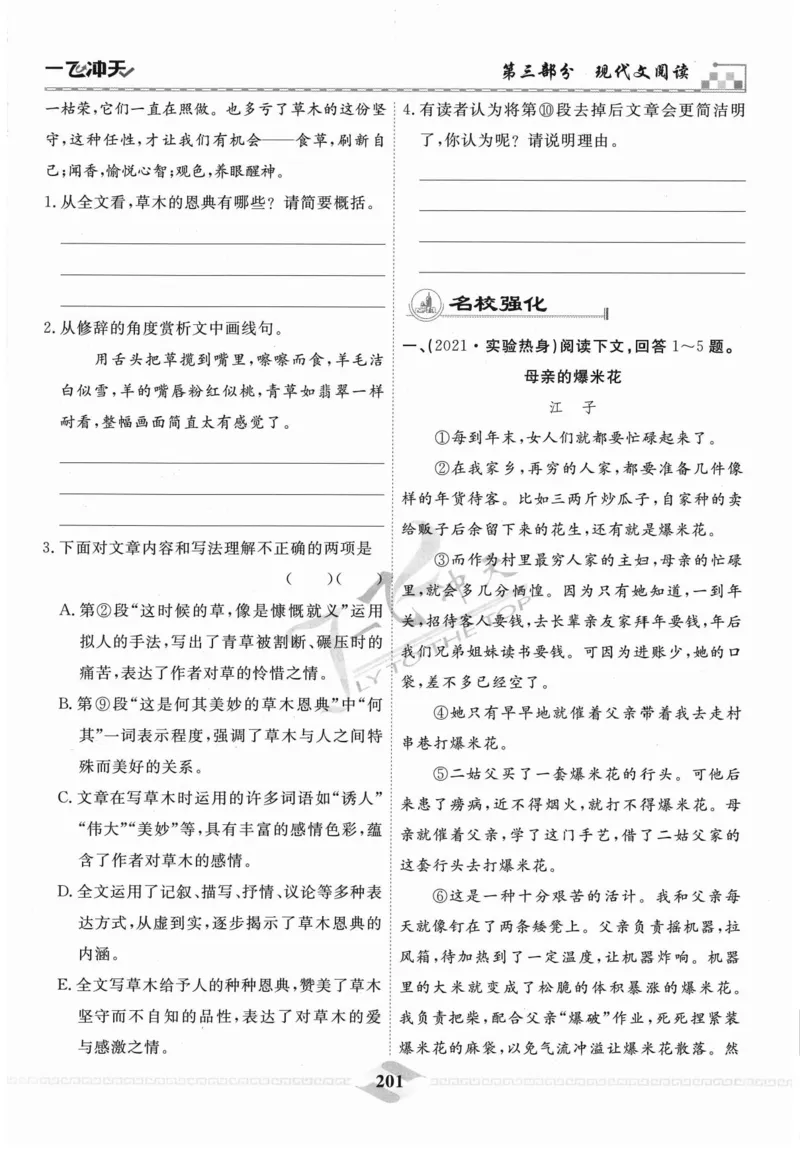 一飞冲天
第三部分 现代文阅读
一枯荣,它们一直在照做。也多亏了草木的这份坚
守,这种任性,才让我们有机会——食草,刷新自
己;闻香,愉悦心智;观色,养眼醒神。
1.从全文看,草木的恩典有哪些? 请简要概括。
2.从修辞的角度赏析文中画线句。
用舌头把草揽到嘴里,嚓嚓而食,羊毛洁
白似雪,羊的嘴唇粉红似桃,青草如翡翠一样
耐看,整幅画面简直太有感觉了。
3.下面对文章内容和写法理解不正确的两项是
( )( )
A.第②段“这时候的草,像是慷慨就义”运用
拟人的手法,写出了青草被割断、碾压时的
痛苦,表达了作者对草的怜惜之情。
B.第⑨段“这是何其美妙的草木恩典”中“何
其”一词表示程度,强调了草木与人之间特
殊而美好的关系。
C.文章在写草木时运用的许多词语如“诱人”
“伟大”“美妙”等,具有丰富的感情色彩,蕴
含了作者对草木的感情。
D.全文运用了记叙、描写、抒情、议论等多种表
达方式,从虚到实,逐步揭示了草木恩典的
内涵。
E.全文写草木给予人的种种恩典,赞美了草木
坚守而不自知的品性,表达了对草木的爱
与感激之情。
4.有读者认为将第⑩段去掉后文章会更简洁明
了,你认为呢? 请说明理由。
名校强化
一、(2021·实验热身)阅读下文,回答1～5题。
母亲的爆米花
江 子
①每到年末,女人们就都要忙碌起来了。
②在我家乡,再穷的人家,都要准备几件像
样的年货待客。比如三两斤炒瓜子,自家种的卖
给贩子后余留下来的花生,还有就是爆米花。
③而作为村里最穷人家的主妇,母亲的忙碌
里,就会多几分恓惶。因为只有她知道,一到年
关,招待客人要钱,去长辈亲友家拜年要钱,年后
我们兄弟姐妹读书要钱。可因为进账少,她的口
袋,差不多已经空了。
④她只有早早地就催着父亲带着我去走村
串巷打爆米花。
⑤二姑父买了一套爆米花的行头。可他后
来患了痨病,近不得烟火,就打不得爆米花。母
亲就催着父亲,学了这门手艺,借了二姑父家的
这套行头去打爆米花。
⑥这是一种十分艰苦的活计。我和父亲每
天就像钉在了两条矮凳上。父亲负责摇机器,拉
风箱,待加热到了一定温度,让机器炸响。机器
里的大米就变成了松脆的体积暴涨的爆米花。
我负责把柴,配合父亲“爆破”作业,死死捏紧装
爆米花的麻袋,以免气流冲溢让爆米花散落。然
一飞冲天
FLY TO THE TOP
201